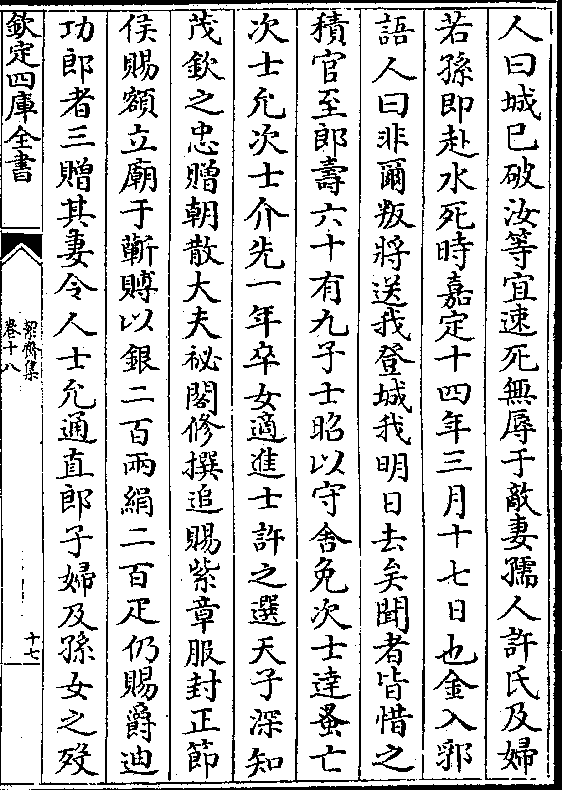 人曰城已破汝等宜速死無辱于敵妻孺人許氏及婦
若孫即赴水死時嘉定十四年三月十七日也金入郛
語人曰非爾叛將送我登城我明日去矣聞者皆惜之
積官至郎壽六十有九子士昭以守舍免次士達蚤亡
次士允次士介先一年卒女適進士許之選天子深知
茂欽之忠贈朝散大夫祕閣修撰追賜紫章服封正節
侯賜額立廟于蘄賻以銀二百兩絹二百疋仍賜爵迪
功郎者三贈其妻令人士允通直郎子婦及孫女之歿
欽定四庫全書
絜齋集
卷十八
十七